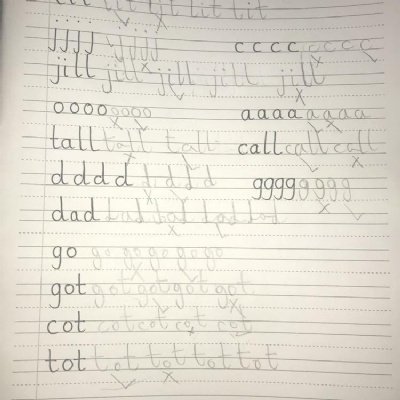 lit lit lit lit lit
j j j j j j j j c c c c c c c c
jill jill jill jill jill
o o o o o o o o a a a a a a a a
tall tall tall call call call
d d d d d d d d g g g g g g g g
dad dad dad dad dad
go go go go go go
got got got got got
cot cot cot cot cot
tot tot tot tot tot